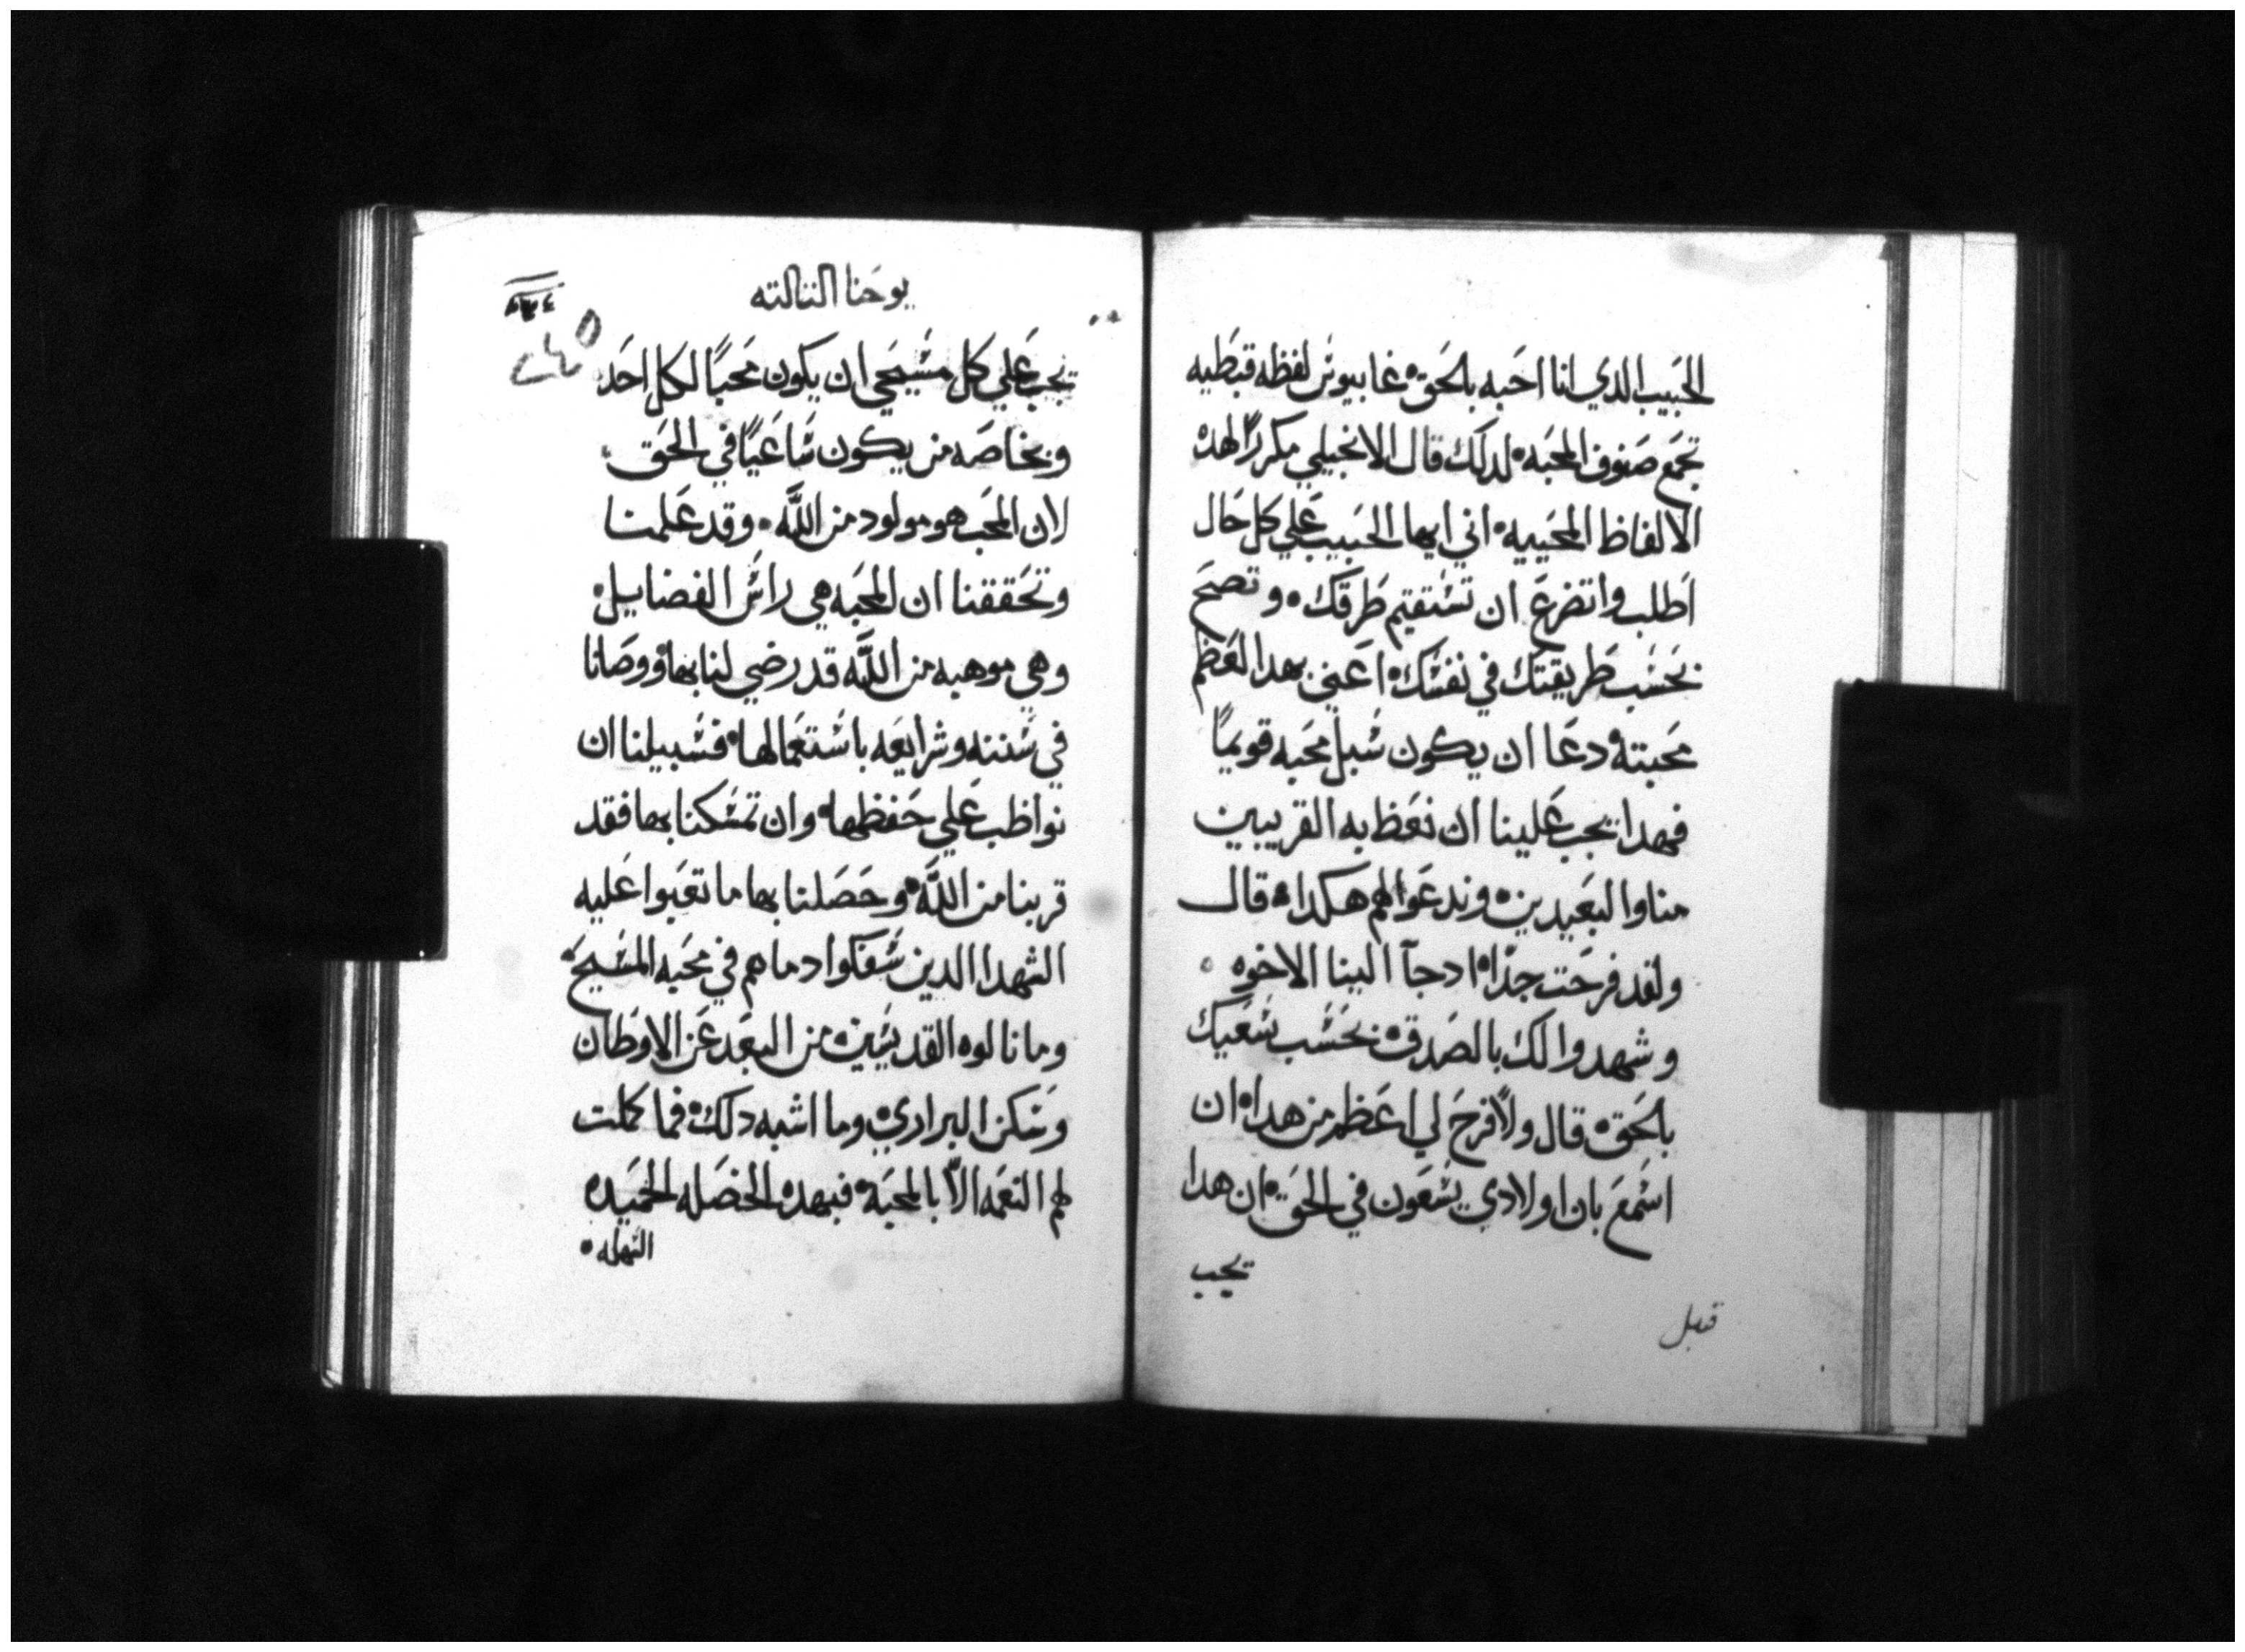 الحبيب الدي انا احبه بالحق غابيوس لفظه قبطيه
تجمع صنوف المحبه لدلك قال الانجيلي مكررًا لهده
الالفاظ المحييه اني ايها الحبيب علي كل حال
اطلب واتضرع ان تستقيم طرقك وتصح
بحسب طريقتك في نفسك اعني بهدا العظم
محبته ودعا ان يكون سبل محبه قويمًا
فهدا يجب علينا ان نعظ به القريبين
منا والبعيدين وندعوا لهم هكدا قال
ولقد فرحت جدًا ادجآ الينا الاخوه
وشهدوا لك بالصدق بحسب سعيك
بالحق قال ولا فرح لي اعظم من هدا ان
اسمع بان اولادي يسعون في الحق ان هدا
يجب
قبل
يوحنا التالته
يجب علي كل مسيحي ان يكون محبًا لكل احد
وبخاصه من يكون ساعيًا في الحق
لان المحب هو مولود من اللّه وقد علمنا
وتحققنا ان المحبه هي راس الفضايل
وهي موهبه من اللّه قد رضي لنا بها ووصانا
في سننه وشرايعه باستعمالها فسبيلنا ان
نواظب علي حفظها وان تمسكنا بها فقد
قربنا من اللّه وحصلنا بها ما تعبوا عليه
الشهدا الدين سفكوا دماهم في محبه المسيح
وما نالوه القديسين من البعد عن الاوطان
وسكن البراري وما اشبه دلك فما كملت
لهم النعمه الّا بالمحبه فبهده الخصله الحميده